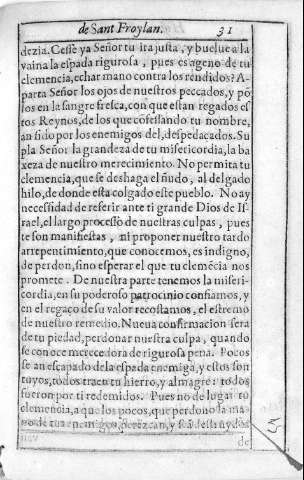 de Sant Froylan. 31
dezia. Cesse ya Señor tu ira justa, y buelue a la
vaina la espada rigurosa, pues es ageno de tu
clemencia, echar mano contra los rendidos? A-
parta Señor los ojos de nuestros peccados, y pō
los en la sangre fresca, con que estan regados es
tos Reynos, de los que cōfessando tu nombre,
an sido por los enemigos del, despedacados. Su
pla Señor la grandeza de tu misericordia, la ba
xeza de nuestro merecimiento. No permita tu
clemencia, que se deshaga el ñudo, al delgado
hilo, de donde esta colgado este pueblo. No ay
necessidad de referir ante ti grande Dios de Is-
rael, el largo processo de nuestras culpas, pues
te son manifiestas, ni proponer nuestro tardo
arrepentimiento, que conocemos, es indigno,
de perdon, sino esperar el que tu clemēcia nos
promete. De nuestra parte tenemos la miseri-
cordia, en su poderoso patrocinio confiamos, y
en el regaço de su valor recostamos, el estremo
de nuestro remedio. Nueua confirmacion sera
de tu piedad, perdonar nuestra culpa, quando
se conoce merecedora de rigurosa pena. Pocos
se an escapado de la espada enemiga, y estos son
tuyos, todos traen tu hierro, y almagre: todos
fueron por ti redemidos. Pues no de lugar tu
clemencia, a que los pocos, que perdono la ma-
no de tu enemigo, perezcan, y sea destruydos
de